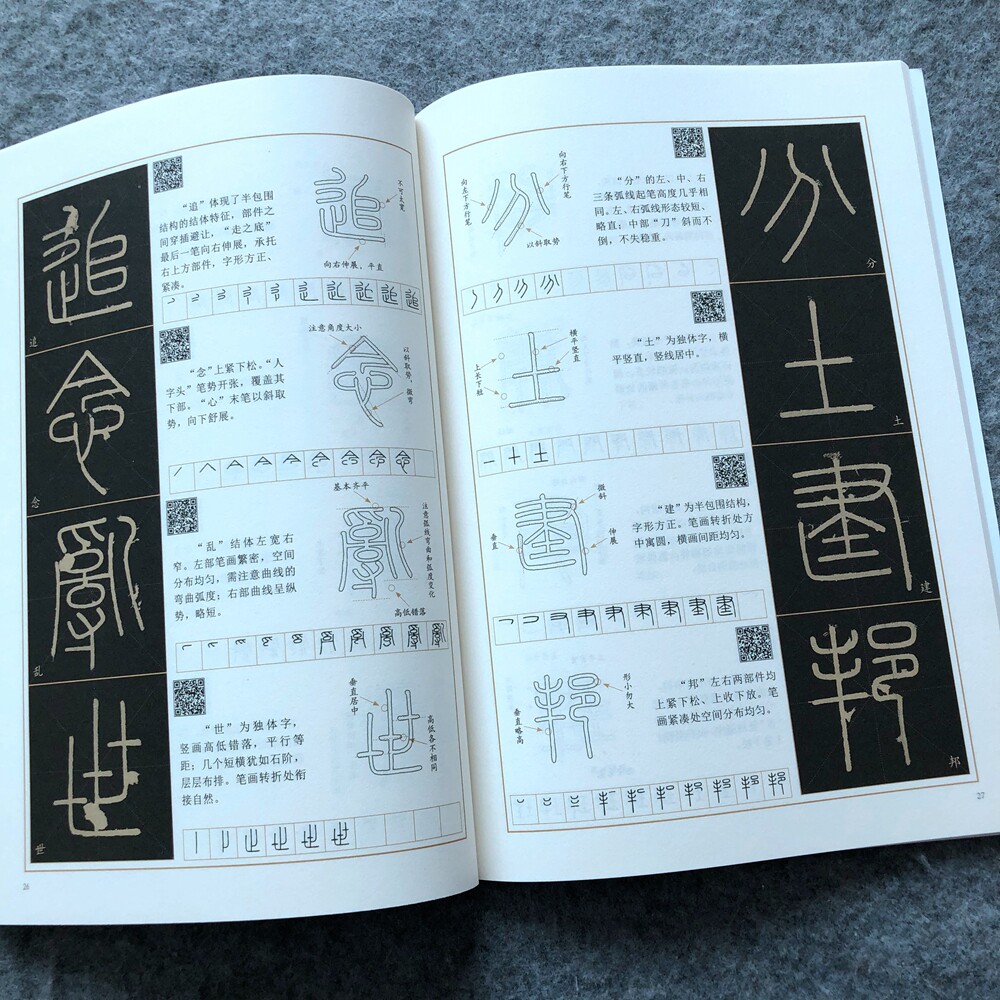 追
“追”体现了半包围
结构的结体特征，部件之
间穿插避让，“走之底”
最后一笔向右伸展，承托
右上方部件，字形方正、
紧凑。
追
不可太宽
向右伸展，平直
追
念
“念”上紧下松。“人
字头”笔势开张，覆盖其
下部。“心”末笔以斜取
势，向下舒展。
念
注意角度大小
以斜取势，微弯
念
乱
“乱”结体左宽右
窄。左部笔画繁密，空间
分布均匀，需注意曲线的
弯曲弧度；右部曲线呈纵
势，略短。
基本齐平
注意弧线弯曲和弧度变化
高低错落
乱
世
“世”为独体字，
竖画高低错落，平行等
距；几个短横犹如石阶，
层层布排。笔画转折处衔
接自然。
世
垂直居中
高低各不相同
世
26
分
“分”的左、中、右
三条弧线起笔高度几乎相
同。左、右弧线形态较短、
略直；中部“刀”斜而不
倒，不失稳重。
分
向左下方行笔
向右下方行笔
以斜取势
分
土
“土”为独体字，横
平竖直，竖线居中。
土
横平竖直
上长下短
土
建
“建”为半包围结构，
字形方正。笔画转折处方
中寓圆，横画间距均匀。
微斜
垂直
伸展
建
邦
“邦”左右两部件均
上紧下松、上收下放。笔
画紧凑处空间分布均匀。
邦
形小勿大
垂直略高
邦
27